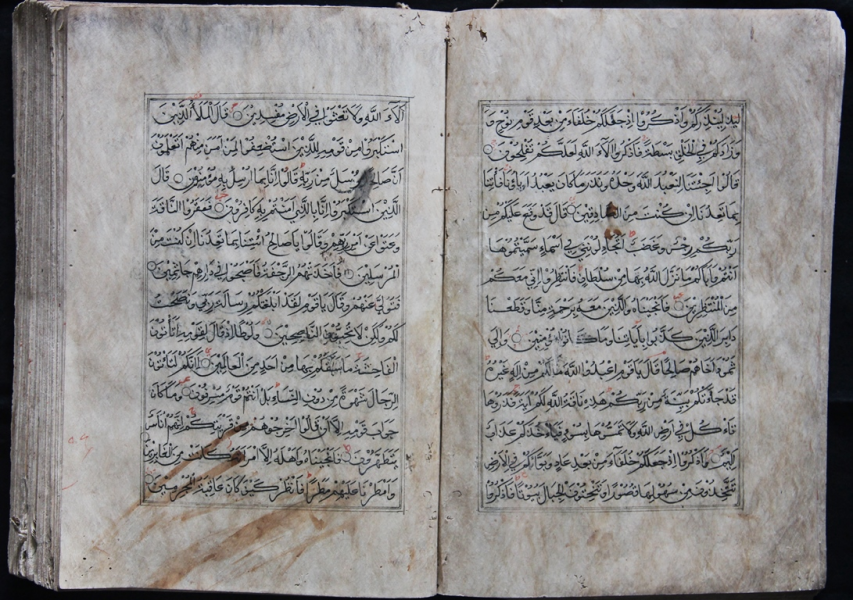 لينذركم واذكروا اذ جعلكم خلفاء من بعد قوم نوح و
وزادكم في الخلق بسطة فاذكروا آلاء الله لعلكم تفلحون
قالوا اجئتنا لنعبد الله وحده ونذر ما كان يعبد اباؤنا فاتنا
بما تعدنا ان كنت من الصادقين قال قد وقع عليكم من
ربكم رجس وغضب اتجادلونني في اسماء سميتموها
انتم واباؤكم ما نزل الله بها من سلطان فانتظروا اني معكم
من المنتظرين فانجيناه والذين معه برحمة منا وقطعنا
دابر الذين كذبوا باياتنا وما كانوا مؤمنين والى
ثمود اخاهم صالحا قال يا قوم اعبدوا الله ما لكم من اله غيره
قد جاءتكم بينة من ربكم هذه ناقة الله لكم اية فذروها
تاكل في ارض الله ولا تمسوها بسوء فياخذكم عذاب
اليم واذكروا اذ جعلكم خلفاء من بعد عاد وبواكم في الارض
تتخذون من سهولها قصورا وتنحتون الجبال بيوتا فاذكروا
آلاء الله ولا تعثوا في الارض مفسدين قال الملأ الذين
استكبروا من قومه للذين استضعفوا لمن امن منهم اتعلمون
ان صالحا مرسل من ربه قالوا انا بما ارسل به مؤمنون قال
الذين استكبروا انا بالذي امنتم به كافرون فعقروا الناقة
وعتوا عن امر ربهم وقالوا يا صالح ائتنا بما تعدنا ان كنت من
المرسلين فاخذتهم الرجفة فاصبحوا في دارهم جاثمين
فتولى عنهم وقال يا قوم لقد ابلغتكم رسالة ربي ونصحت
لكم ولكن لا تحبون الناصحين ولوطا اذ قال لقومه اتاتون
الفاحشة ما سبقكم بها من احد من العالمين انكم لتاتون
الرجال شهوة من دون النساء بل انتم قوم مسرفون وما كان
جواب قومه الا ان قالوا اخرجوهم من قريتكم انهم اناس
يتطهرون فانجيناه واهله الا امراته كانت من الغابرين
وامطرنا عليهم مطرا فانظر كيف كان عاقبة المجرمين